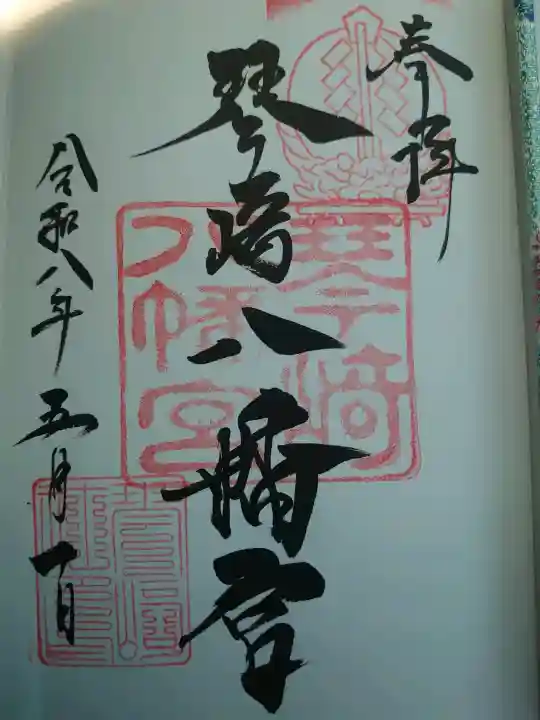 奉拝
琴崎八幡宮
令和八年五月一日
琴崎
八幡宮